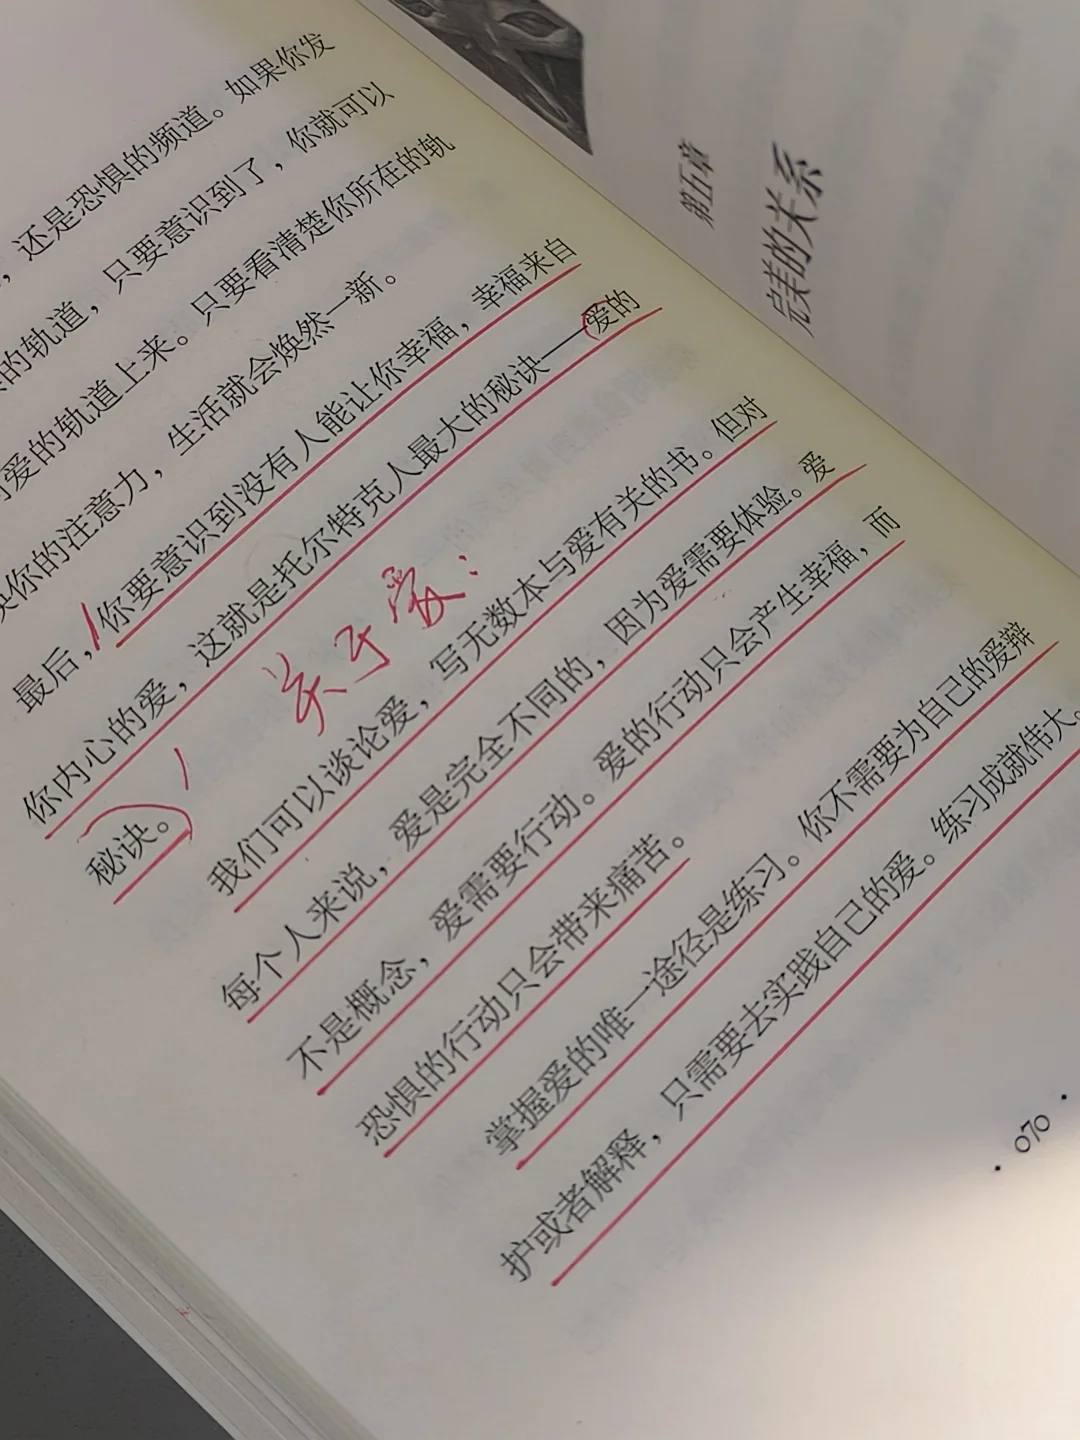 ，还是恐惧的频道。如果你发
的轨道，只要意识到了，你就可以
爱的轨道上来。只要看清楚你所在的轨
你的注意力，生活就会焕然一新。
最后，你要意识到没有人能让你幸福，幸福来自
你内心的爱，这就是托尔特克人最大的秘诀——爱的
秘诀。
关于爱：
我们可以谈论爱，写无数本与爱有关的书。但对
每个人来说，爱是完全不同的，因为爱需要体验。爱
不是概念，爱需要行动。爱的行动只会产生幸福，而
恐惧的行动只会带来痛苦。
掌握爱的唯一途径是练习。你不需要为自己的爱辩
护或者解释，只需要去实践自己的爱。练习成就伟大。
070
第五章
完美的关系